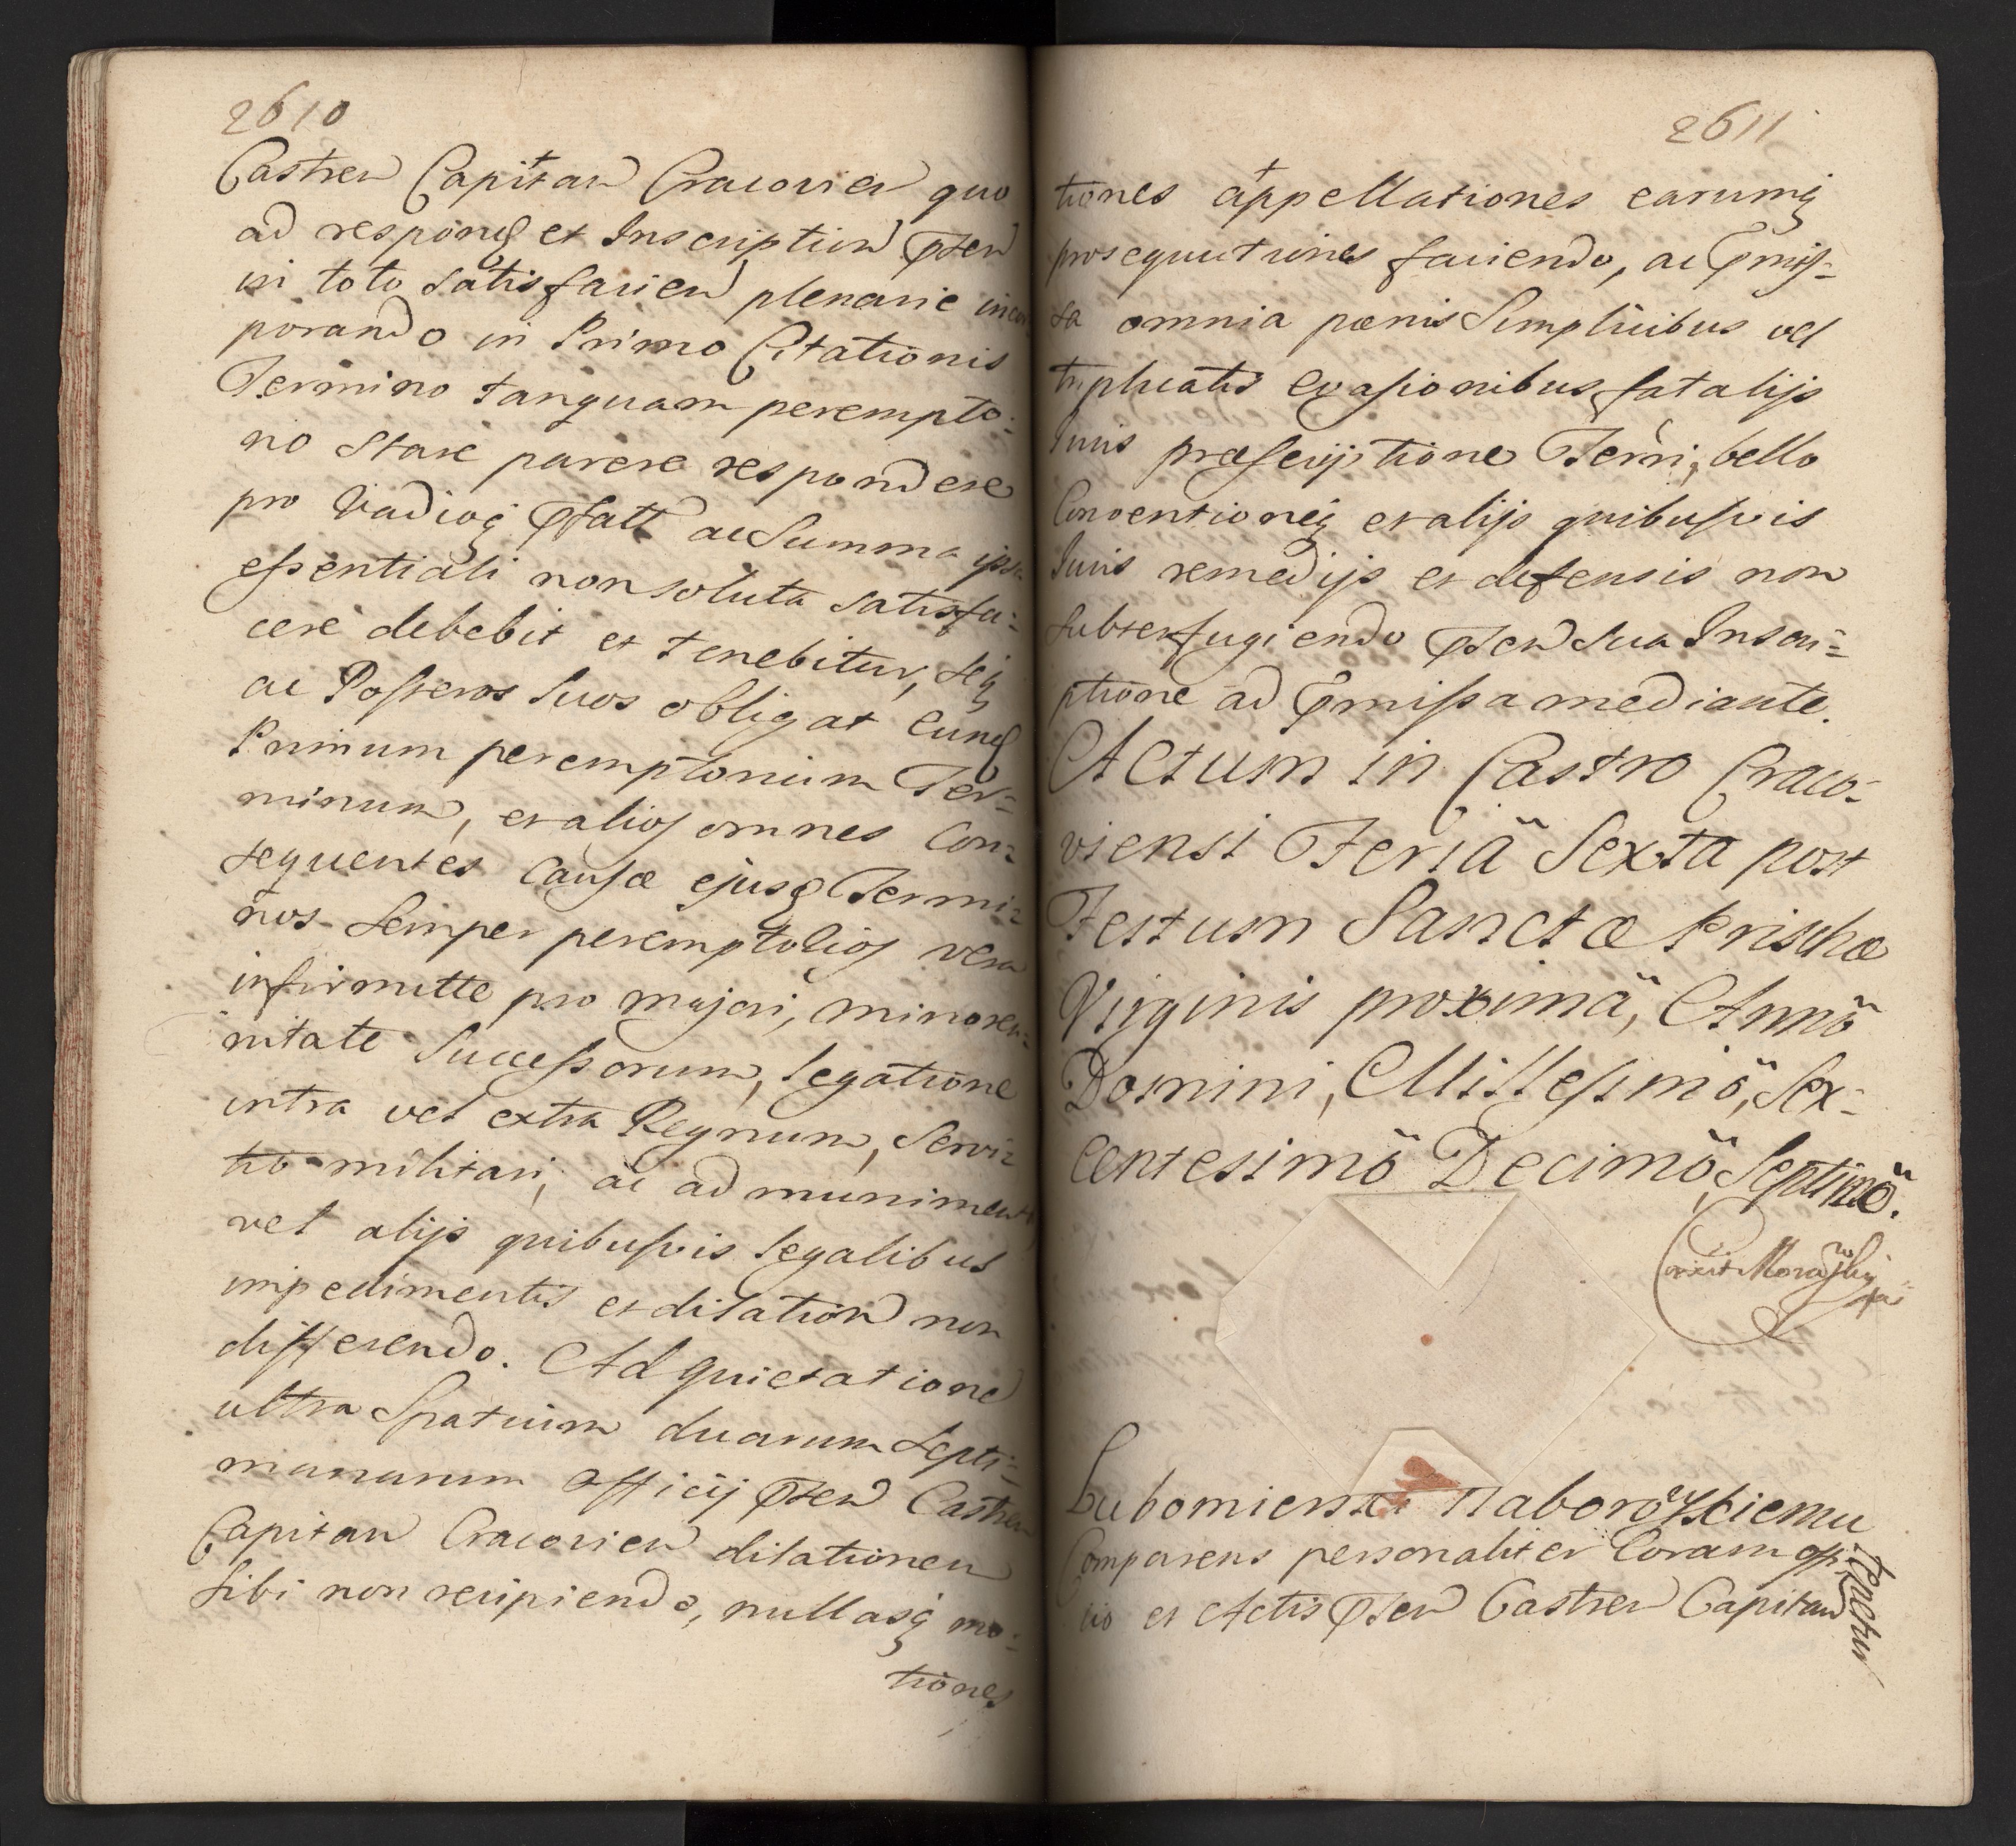 2610
Castren Capitan Cracovien quo
ad respons et Inscription pñten
in toto satisfacien plenarie incor
porando in Primo Citationis
Termino tanquam perempto:
rio stare parere respondere
pro Vadioq pfatt ac Summa ipsa
essentiali non soluta satisfa:
cere debebit et tenebitur, seq
ac Posteros suos obligat Eund
Primum peremptorium Ter=
minum, et alios omnes Con=
sequentes Causæ ejusq Termi=
nos semper peremptorios vera
infirmitte pro majori, minoren=
nitate Successorum, legatione
intra vel extra Regnum, Servi=
tio militari, ac ad muniment,
vel alijs quibusvis legalibus
impedimentis et dilation non
differendo. Ad quietatione
ultra Spatium duarum septi=
manarum Officij pñten Castren
Capitan Cracovien dilationem
sibi non recipiendo, nullasq mo:
tiones
2611
tiones appellationes earumq
prosequutiones faciendo, ac pmiss=
sa omnia pœnis Simplicibus vel
triplicatis evasionibus, fatalijs
Juris præscriptione Terri, bello
Conventioneq et alijs quibusvis
Juris remedijs et defensis non
subterfugiendo pñten sua Inscri=
ptione ad pmissa mediante.
Actum in Castro Craco=
viensi Feriâ Sexta post
Festum Sanctæ Prischæ
Virginis proximâ, Annô
Domini, Millesimô, Sex=
centesimô Decimô, Septimô.
Lubomierski Naborowskiemu
Comparens personaliter Coram offi
cio et Actis pñten Castren Capitan